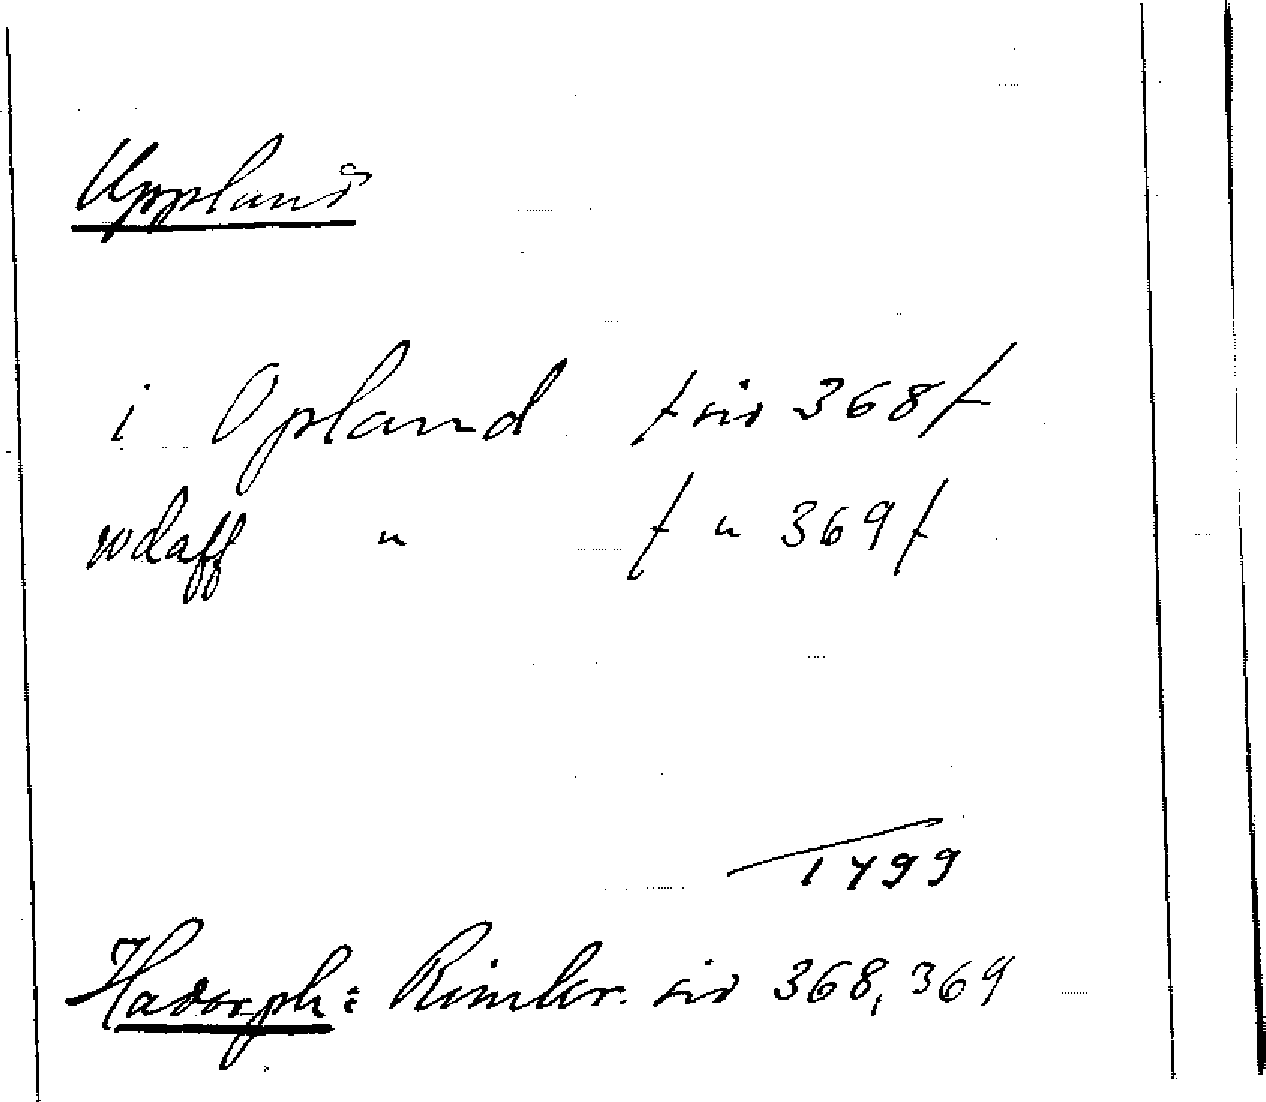 Uppland
i Opland / sid 368 /
wdaff " / " 369 /
1499
Hadorph: Rimkr. sid 368, 369